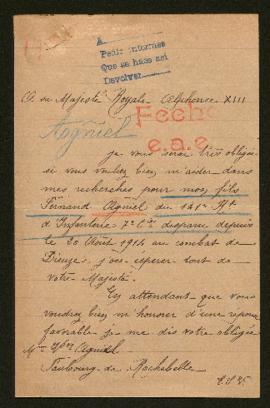 A
Pedir informes
Que se hace así
Devolver
A sa Majesté Royale Alphonse XIII
Fecho
e.a.e
Agniel
je vous serai très obligée
si vous voulez bien m'aider dans
mes recherches pour mon fils
Fernand Agniel du 141e Rt
d'Infanterie 7e Cie disparu depuis
le 20 Août 1914 au combat de
Dieuze, j'ose espérer tout de
votre Majesté.
En attendant que vous
voudrez bien m'honorer d'une réponse
favorable je me dis votre obligée
Mme Agniel
Faubourg de Rochebelle